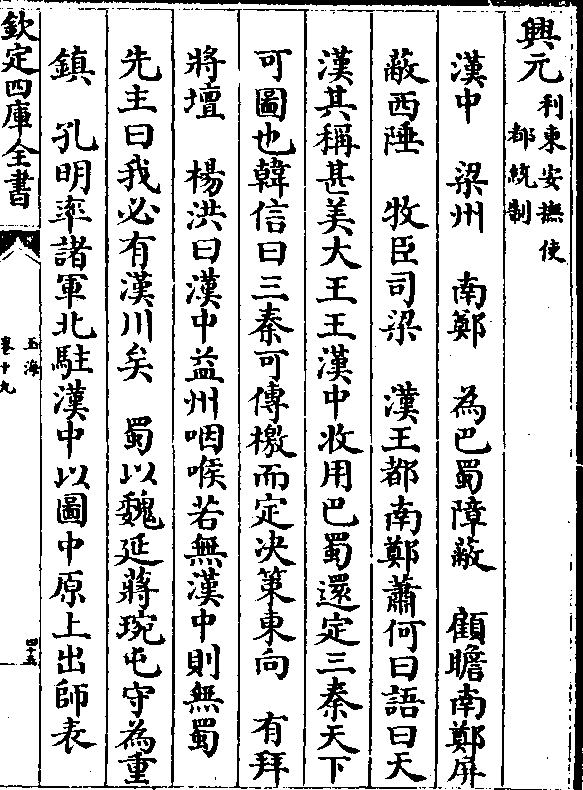 興元利東安撫使都統制
漢中　梁州　南鄭　為巴蜀障蔽　顧瞻南鄭屏
蔽西陲　牧臣司梁　漢王都南鄭蕭何曰語曰天
漢其稱甚美大王王漢中收用巴蜀還定三秦天下
可圖也韓信曰三秦可傳檄而定决策東向　有拜
將壇　楊洪曰漢中益州咽喉若無漢中則無蜀
先主曰我必有漢川矣　蜀以魏延蔣琬屯守為重
鎮　孔明率諸軍北駐漢中以圖中原上出師表
欽定四庫全書
玉海
卷十九
四十五